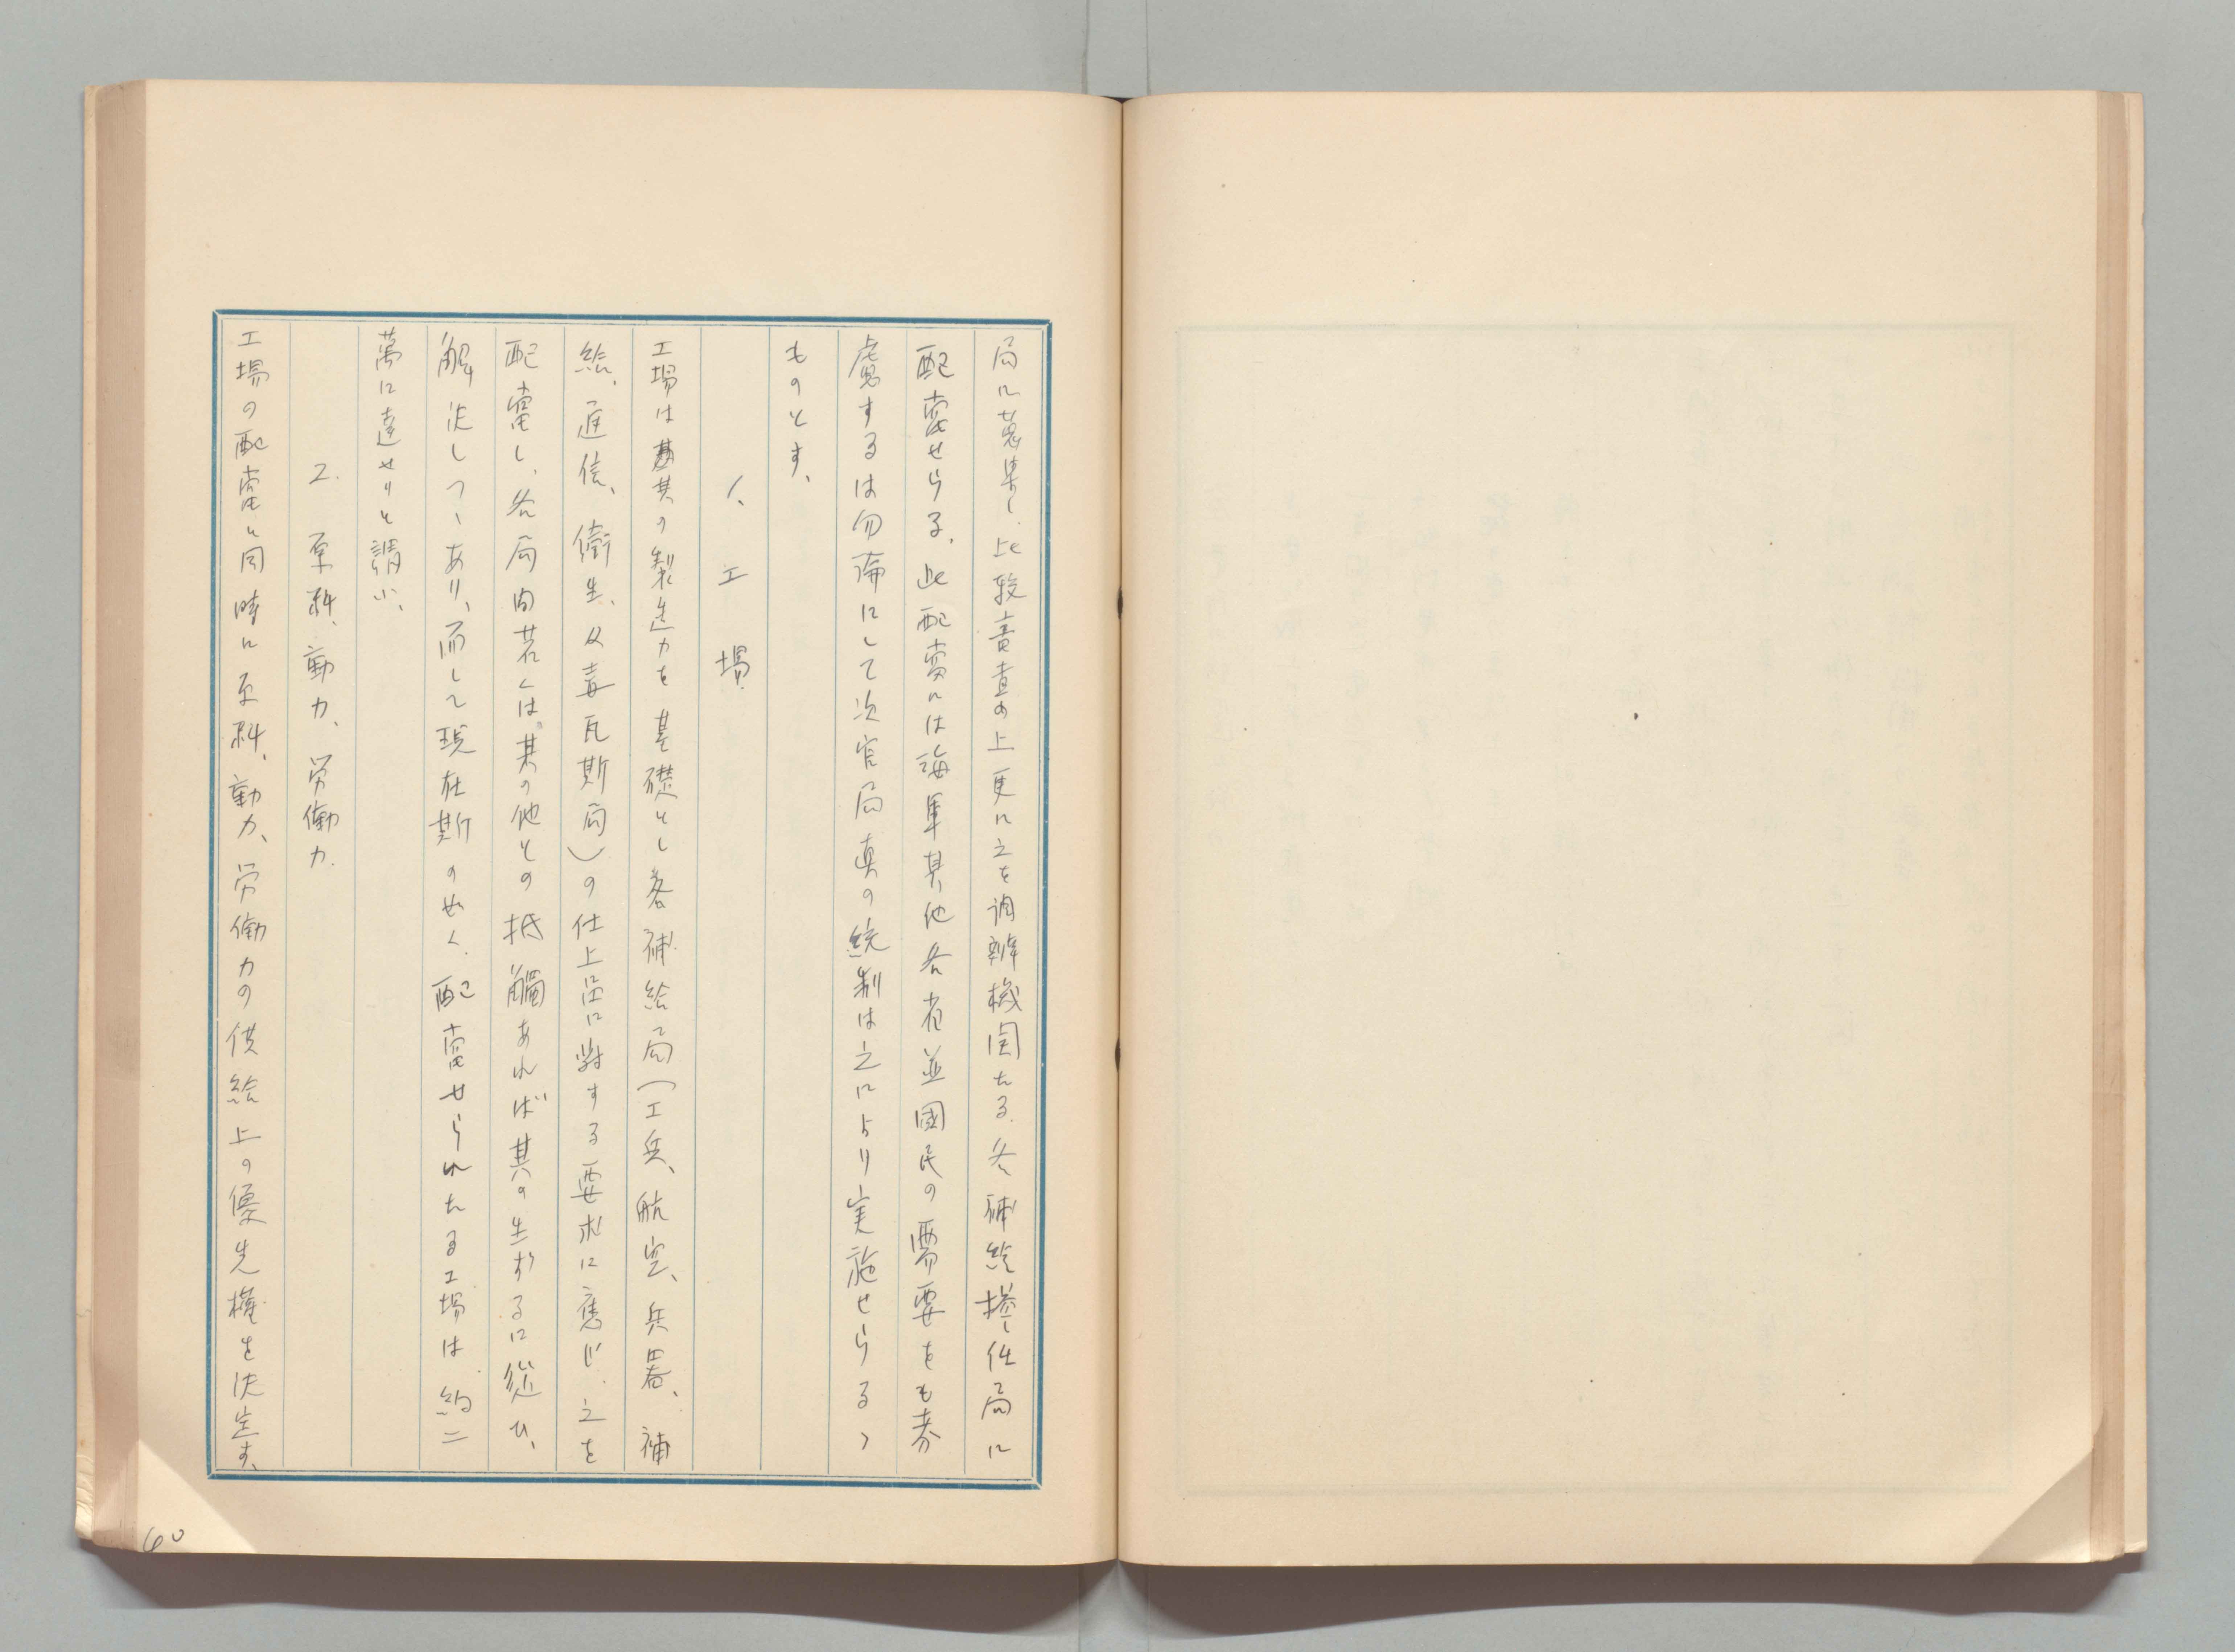 局に蒐集し、比較審査の上更に之を調辨機関たる各補給擔任局に
配當せらる、此配當には海軍其他各省並國民の需要をも考
慮するは勿論にして次官局真の統制は之により実施せらるゝ
ものとす、
1、工場
工場は其の製造力を基礎とし各補給局(工兵、航空、兵器、補
給、通信、衛生、及毒瓦斯局)の仕上品に対する要求に應じ之を
配當し、各局内若くは其の他との抵觸あれば其の生ずるに從ひ、
解決しつゝあり、而して現在斯の如く配當せられたる工場は約二
萬に達せりと謂ふ、
2. 原料、動力、労働力
工場の配當と同時に原料、動力、労働力の供給上の優先権を決定す、
60